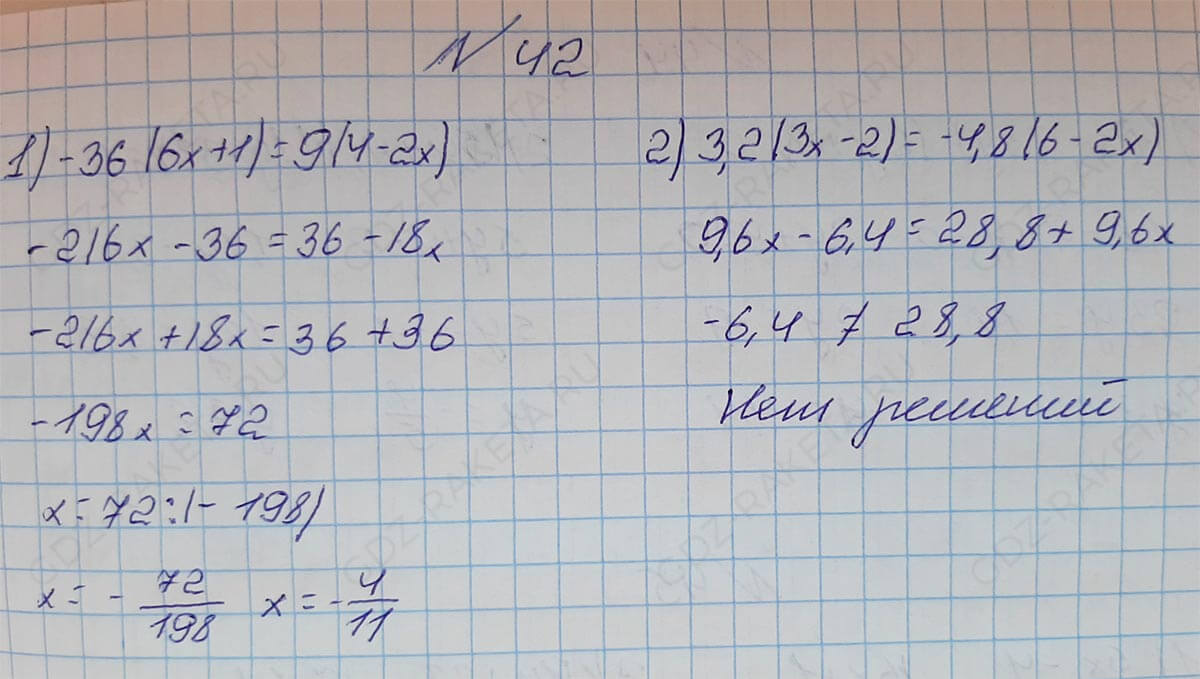 № 42
1) -36(6x+1)=9(4-2x)
-216x -36=36-18x
-216x+18x=36+36
-198x=72
x=72:(-198)
x= - 72/198 x=-4/11
2) 3,2(3x-2)=-4,8(6-2x)
9,6x-6,4=28,8+9,6x
-6,4 ≠ 28,8
Нет решений
GDZ-RAKETA.RU